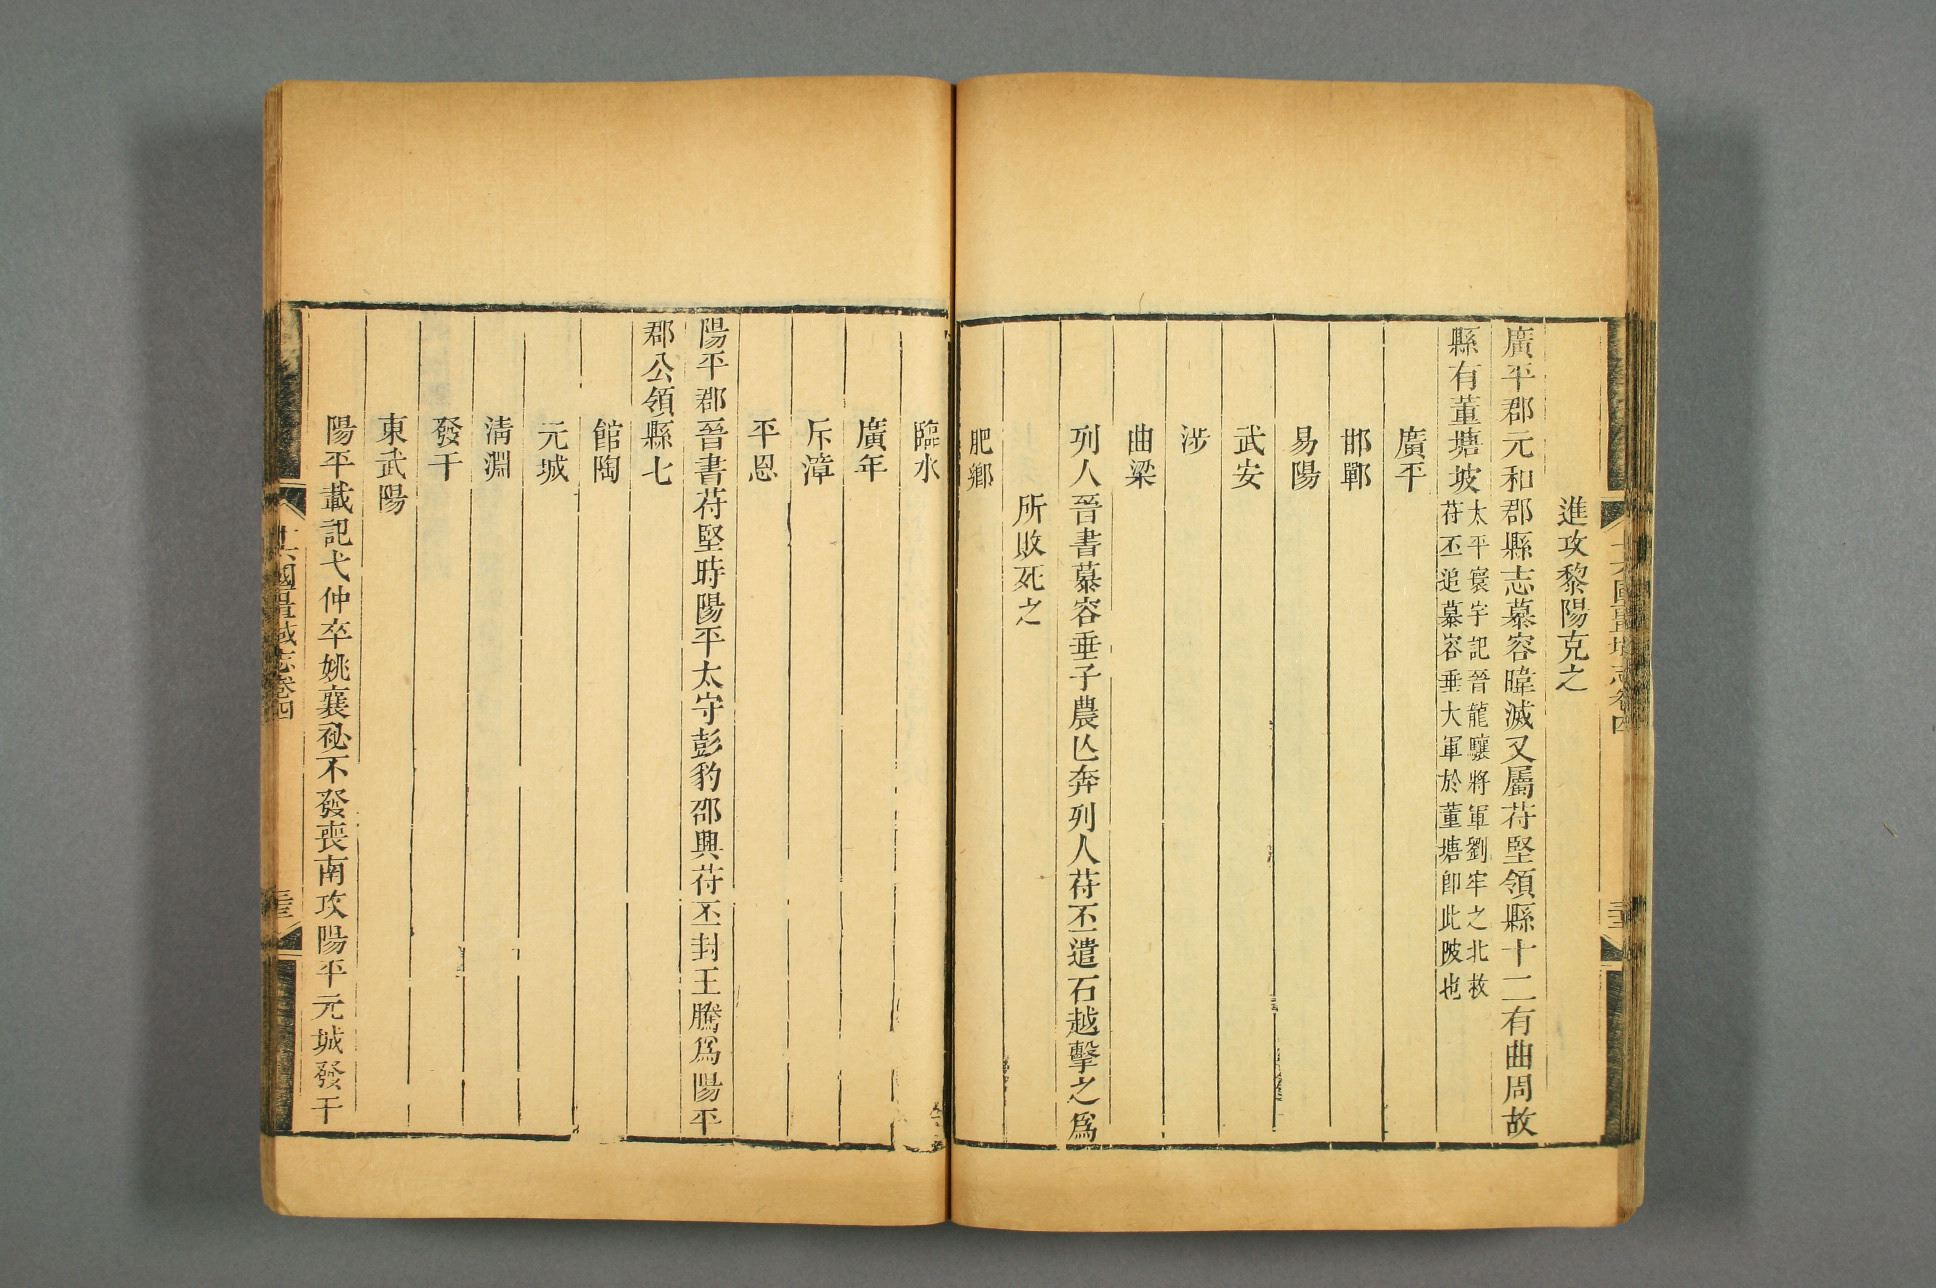 進攻黎陽克之
廣平郡元和郡縣志慕容暐滅又屬苻堅領縣十二有曲周故
縣有董塘坡太平寰宇記晉龍驤將軍劉牢之北救
苻丕追慕容垂大軍於董塘卽此陂也
廣平
邯鄲
易陽
武安
涉
曲梁
列人晉書慕容垂子農亾奔列人苻丕遣石越擊之爲
所敗死之
肥鄉
臨水
廣年
斥漳
平恩
陽平郡晉書苻堅時陽平太守彭豹邵興苻丕封王騰爲陽平
郡公領縣七
館陶
元城
淸淵
發干
東武陽
陽平載記弋仲卒姚襄祕不發喪南攻陽平元城發干
十六國疆域志卷四